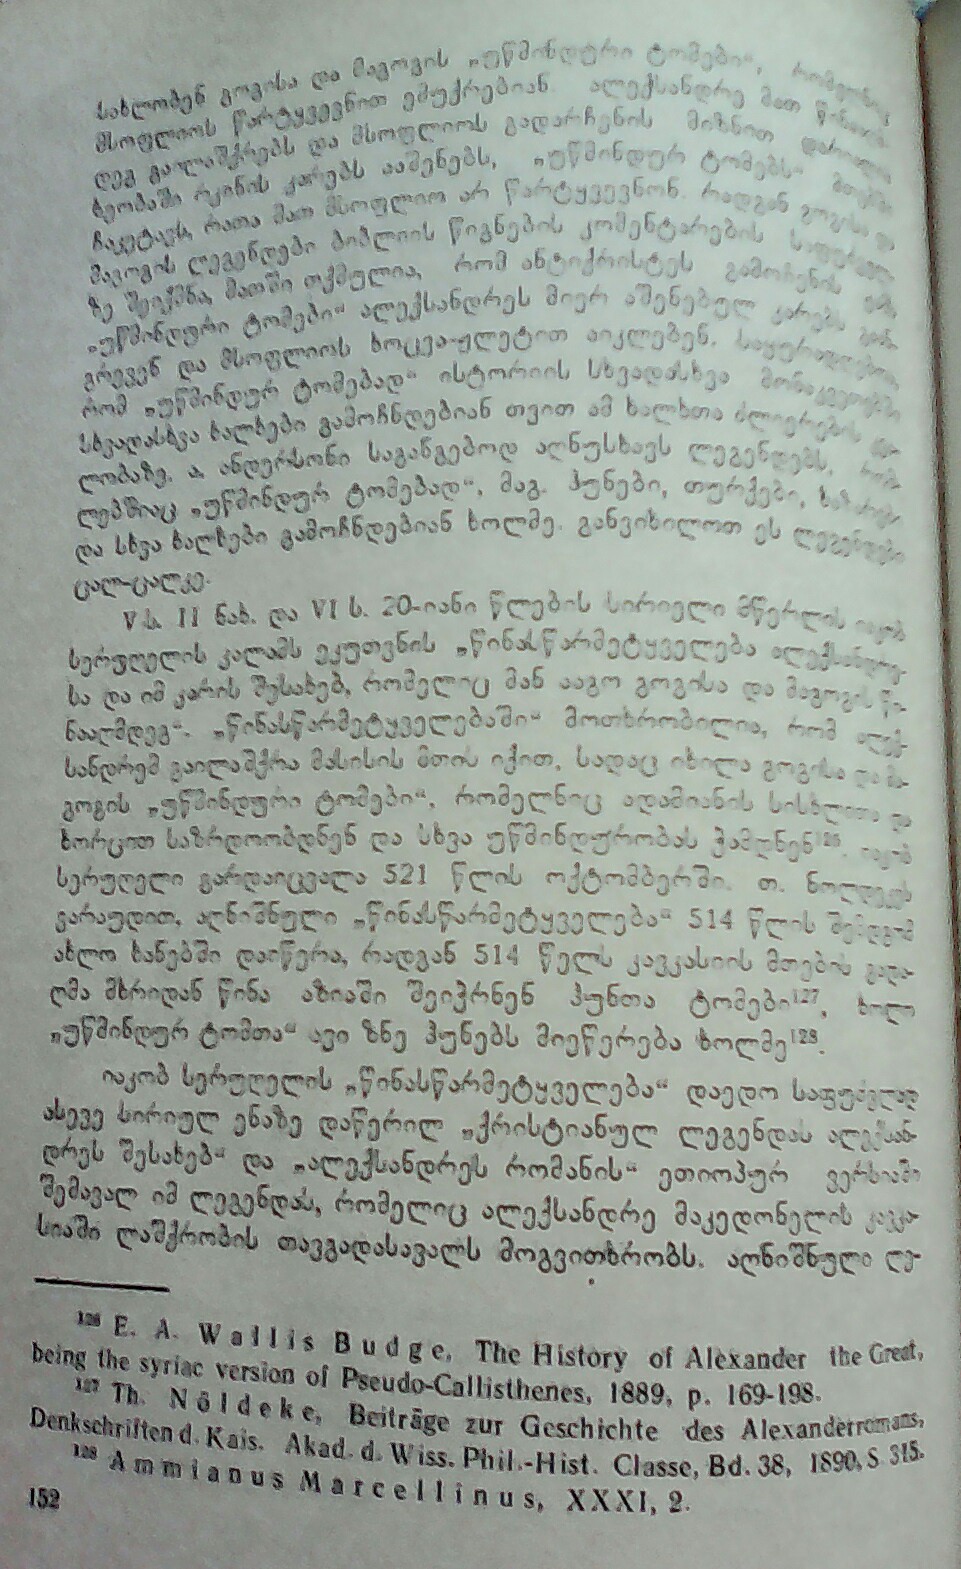 სახლობენ გოგისა და მაგოგის „უწმინდური ტომები“, რომელნიც
მსოფლიოს წარტყვევნით ემუქრებიან. ალექსანდრე მათ წინააღმ-
დეგ გაილაშქრებს და მსოფლიოს გადარჩენის მიზნით დარიალის
ხეობაში რკინის კარებს ააშენებს, „უწმინდურ ტომებს“ მთებში
ჩაკეტავს, რათა მათ მსოფლიო არ წარტყვევნონ. რადგან გოგისა და
მაგოგის ლეგენდები ბიბლიის წიგნების კომენტარების საფუძველ-
ზე შეიქმნა, მათში თქმულია, რომ ანტიქრისტეს გამოჩენის
„უწმინდური ტომები“ ალექსანდრეს მიერ აშენებულ კარებს
გრევენ და მსოფლიოს ხოცვა-ჟლეტით აიკლებენ. საყურადღებოა,
რომ „უწმინდურ ტომებად“ ისტორიის სხვადასხვა მონაკვეთებში
სხვადასხვა ხალხები გამოჩნდებიან თვით ამ ხალხთა ძლიერების
ლობაზე. ა. ანდერსონი საგანგებოდ აღნუსხავს ლეგენდებს, რომ-
ლებშიაც „უწმინდურ ტომებად“, მაგ. ჰუნები, თურქები, ხაზარები
და სხვა ხალხები გამოჩნდებიან ხოლმე. განვიხილოთ ეს ლეგენდები
ცალ-ცალკე.
V ს. II ნახ. და VI ს. 20-იანი წლების სირიელი მწერლის იაკობ
სერუღელის კალამს ეკუთვნის „წინასწარმეტყველება ალექსანდრე-
სა და იმ კარის შესახებ, რომელიც მან ააგო გოგისა და მაგოგის წი-
ნააღმდეგ“. „წინასწარმეტყველებაში“ მოთხრობილია, რომ ალექ-
სანდრემ გაილაშქრა მასისის მთის იქით, სადაც იხილა გოგისა და მა-
გოგის „უწმინდური ტომები“, რომელნიც ადამიანის სისხლითა და
ხორცით საზრდოობდნენ და სხვა უწმინდურობას ჭამდნენ¹²⁶. იაკობ
სერუღელი გარდაიცვალა 521 წლის ოქტომბერში. თ. ნოლდეკეს
ვარაუდით, აღნიშნული „წინასწარმეტყველება“ 514 წლის შემდგომ
ახლო ხანებში დაიწერა, რადგან 514 წელს კავკასიის მთების გადა-
ღმა მხრიდან წინა აზიაში შეიჭრნენ ჰუნთა ტომები¹²⁷, ხოლო
„უწმინდურ ტომთა“ ავი ზნე ჰუნებს მიეწერება ხოლმე¹²⁸.
იაკობ სერუღელის „წინასწარმეტყველება“ დაედო საფუძვლად
ასევე სირიულ ენაზე დაწერილ „ქრისტიანულ ლეგენდას ალექსან-
დრეს შესახებ“ და „ალექსანდრეს რომანის“ ეთიოპურ ვერსიაში
შემავალ იმ ლეგენდას, რომელიც ალექსანდრე მაკედონელის კავკა-
სიაში ლაშქრობის თავგადასავალს მოგვითხრობს. აღნიშნული ლე-
¹²⁶ E. A. Wallis Budge, The History of Alexander the Great,
being the syriac version of Pseudo-Callisthenes, 1889, p. 169-198.
¹²⁷ Th. Nöldeke, Beiträge zur Geschichte des Alexanderromans,
Denkschriften d. Kais. Akad. d. Wiss. Phil.-Hist. Classe, Bd. 38, 1890, S 315.
¹²⁸ Ammianus Marcellinus, XXXI, 2.
152